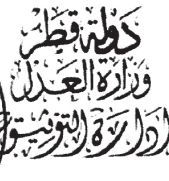 دولة قطر
وزارة العدل
ادارة التوثيق